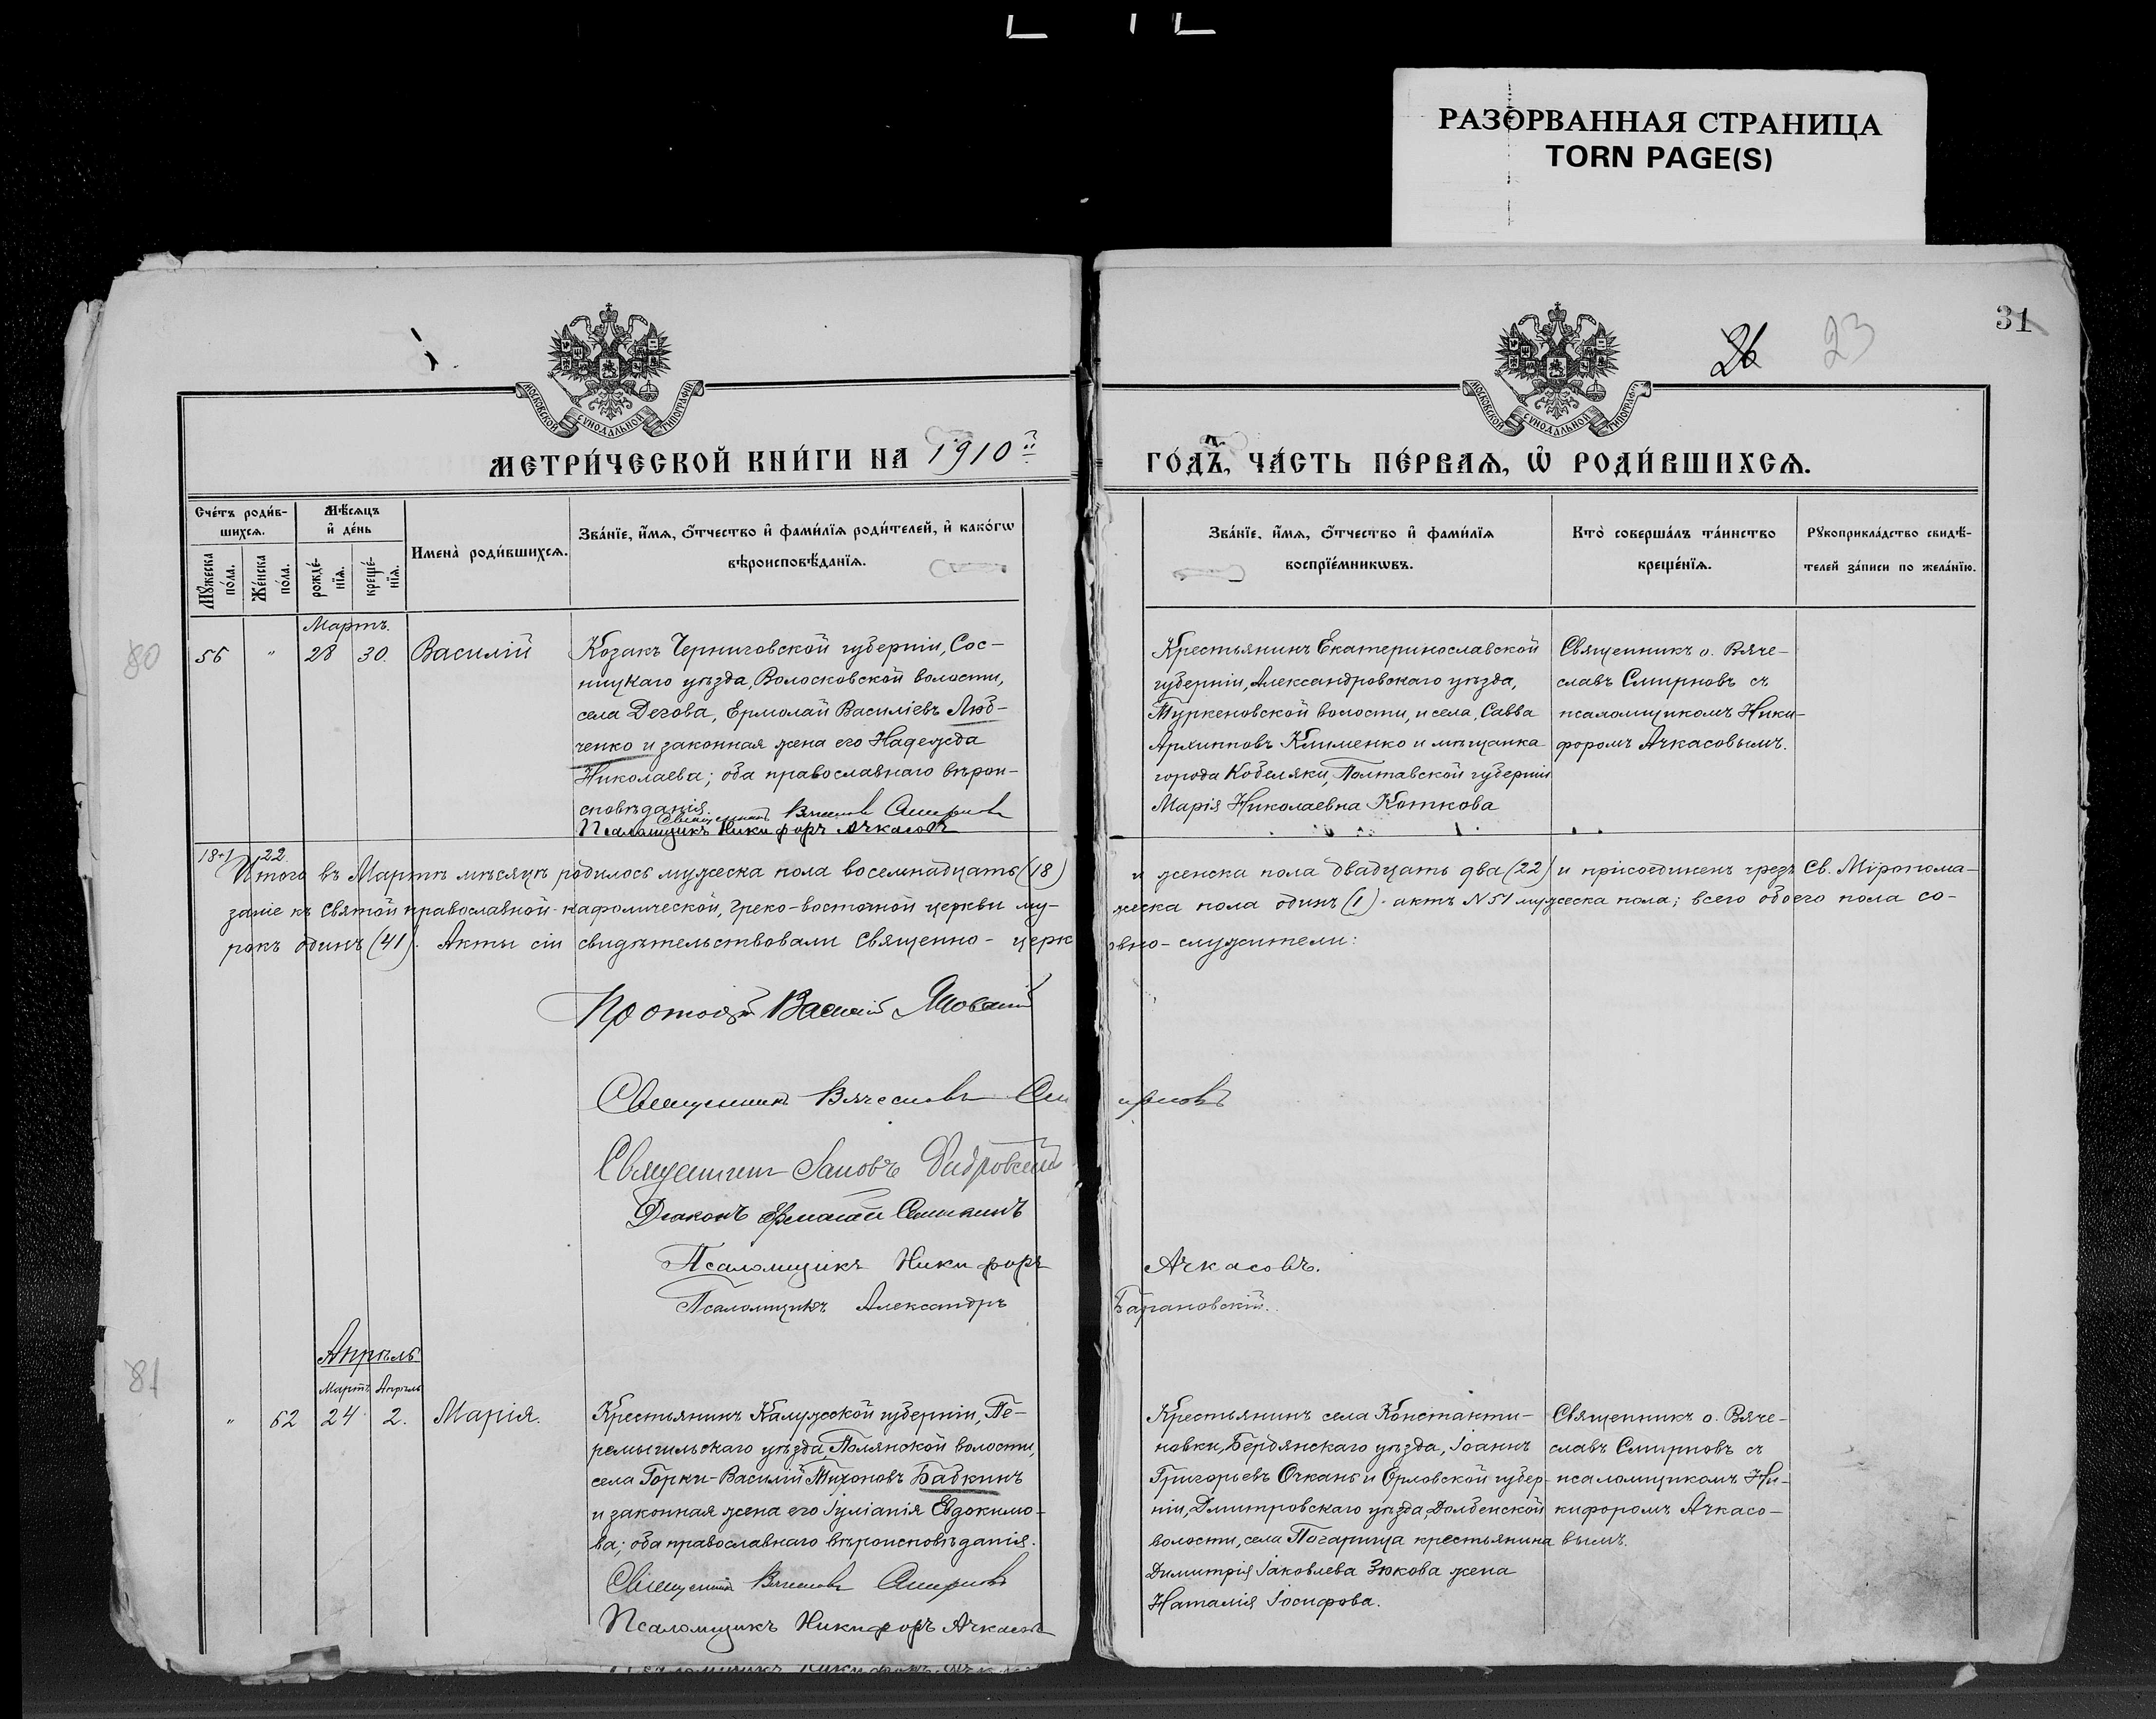 РАЗОРВАННАЯ СТРАНИЦА
TORN PAGE(S)
31
26 23
МОСКОВСКОЙ СѴНОДАЛЬНОЙ ТИПОГРАФІИ
МОСКОВСКОЙ СѴНОДАЛЬНОЙ ТИПОГРАФІИ
МЕТРИ́ЧЕСКОЙ КНИ́ГИ НА 1910й
ГО́ДЪ, ЧА́СТЬ ПЕ́РВАѦ, Ѡ҆ РОДИ́ВШИХСѦ.
Сче́тъ роди́в-
шихсѧ.
Мꙋ́жеска
по́ла.
Же́нска
по́ла.
Мѣ́сѧцъ
и҆ де́нь
рожде́-
нїѧ.
креще́-
нїѧ.
Имена̀ роди́вшихсѧ.
Зва́нїе, и҆́мѧ, ѻ҆́тчество и҆ фами́лїѧ роди́телей, и҆ како́гѡ
вѣроисповѣ́данїѧ.
Зва́нїе, и҆́мѧ, ѻ҆́тчество и҆ фами́лїѧ
воспрїе́мникѡвъ.
Кто̀ соверша́лъ та́инство
креще́нїѧ.
Рꙋкоприкла́дство свидѣ́-
телей за́писи по жела́нїю.
80
Мартъ.
56 " 28 30. Василій
Козакъ Черниговской губерніи, Сос-
ницкаго уѣзда, Волосковской волости,
села Дегова, Ермолай Василіевъ Люб-
ченко и законная жена его Надежда
Николаева; оба православнаго вѣрои-
сповѣданія.
Священникъ Вячеславъ Смирновъ
Псаломщикъ Никифоръ Ачкасовъ
Крестьянинъ Екатеринославской
губерніи, Александровскаго уѣзда,
Туркеновской волости, и села, Савва
Архиповъ Клименко и мѣщанка
города Кобеляки, Полтавской губерніи
Марія Николаевна Коткова
Священникъ о. Вяче-
славъ Смирновъ съ
псаломщикомъ Ники-
форомъ Ачкасовымъ.
18+1 22.
Итого въ Мартѣ мѣсяцѣ родилось мужеска пола восемнадцать (18) и женска пола двадцать два (22) и присоединенъ чрезъ Св. Мѵропома-
заніе къ Святой православной-кафолической, греко-восточной церкви му-жеска пола одинъ (1)-актъ N 51 мужеска пола; всего обоего пола со-
рокъ одинъ (41). Акты сіи свидѣтельствовали Священно-церковно-служители:
Протоіерей Василій
Священникъ Вячеславъ Смирновъ
Священникъ
Діаконъ
Псаломщикъ Никифоръ Ачкасовъ.
Псаломщикъ Александръ Барановскій.
81
Апрѣль
Мартъ Апрѣль
" 62 24 2. Марія.
Крестьянинъ Калужской губерніи, Пе-
ремышльскаго уѣзда, Полянской волости,
села Горки-Василій Тихоновъ Бабкинъ
и законная жена его Іуліанія Евдокимо-
ва; оба православнаго вѣроисповѣданія.
Священникъ Вячеславъ Смирновъ
Псаломщикъ Никифоръ Ачкасовъ
Крестьянинъ села Константи-
новки, Бердянскаго уѣзда, Іоаннъ
Григорьевъ Очкань и Орловской губер-
ніи, Дмитровскаго уѣзда, Долбенской
волости, села Погарища крестьянина
Димитрія Іаковлева Зюкова жена
Наталія Іосифова.
Священникъ о. Вяче-
славъ Смирновъ съ
псаломщикомъ Ни-
кифоромъ Ачкасо-
вымъ.